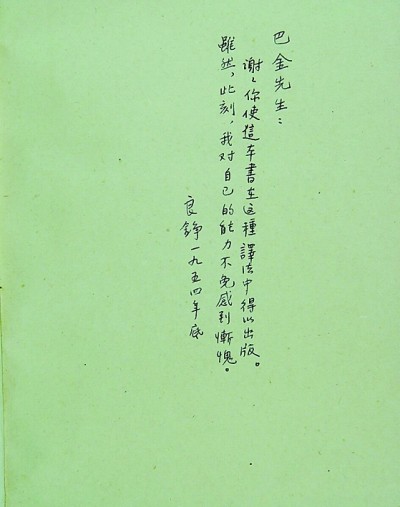 巴金先生：
谢谢你使這本書在这種譯法中得以出版。
雖然，此刻，我对自己的能力不免感到慚愧。
良錚一九五四年底